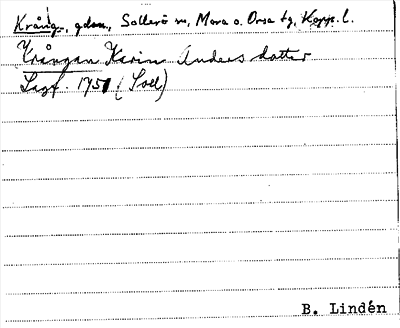 Krång-, gdsn, Sollerö sn, Mora o. Orsa tg, Kopp. l.
Krångan Karin Anders dotter
Lagf. 1751 (Soll)
B. Lindén